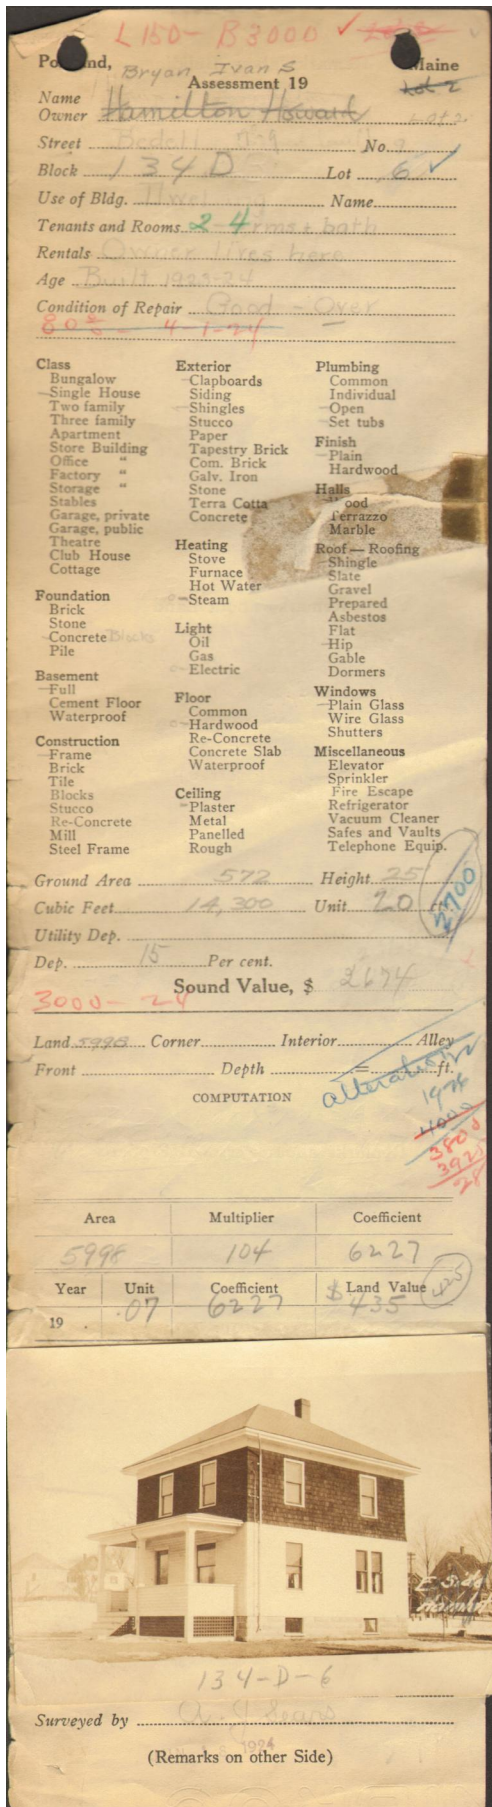 L 150 - B 3000 ✓
Portland, Maine
Bryan, Ivan S
Assessment 19
Lot 2
Name
Owner Hamilton Howard Lot 2
Street Bedell No.
Block 134 D Lot 6 ✓
Use of Bldg. Name
Tenants and Rooms 2 4 rms + bath
Rentals Owner lives here
Age Built 1923-24
Condition of Repair Good - Over
80% - 4-1-24
Class
Bungalow
Single House
Two family
Three family
Apartment
Store Building
Office "
Factory "
Storage "
Stables
Garage, private
Garage, public
Theatre
Club House
Cottage
Foundation
Brick
Stone
Concrete Blocks
Pile
Basement
Full
Cement Floor
Waterproof
Construction
Frame
Brick
Tile
Blocks
Stucco
Re-Concrete
Mill
Steel Frame
Exterior
Clapboards
Siding
Shingles
Stucco
Paper
Tapestry Brick
Com. Brick
Galv. Iron
Stone
Terra Cotta
Concrete
Heating
Stove
Furnace
Hot Water
Steam
Light
Oil
Gas
Electric
Floor
Common
Hardwood
Re-Concrete
Concrete Slab
Waterproof
Ceiling
Plaster
Metal
Panelled
Rough
Plumbing
Common
Individual
Open
Set tubs
Finish
Plain
Hardwood
Halls
ood
Terrazzo
Marble
Roof — Roofing
Shingle
Slate
Gravel
Prepared
Asbestos
Flat
Hip
Gable
Dormers
Windows
Plain Glass
Wire Glass
Shutters
Miscellaneous
Elevator
Sprinkler
Fire Escape
Refrigerator
Vacuum Cleaner
Safes and Vaults
Telephone Equip.
Ground Area 572 Height 25
Cubic Feet 14,300 Unit 20 ct.
2700
Utility Dep.
Dep. 15 Per cent.
Sound Value, $ 2674
3000 - 24
Land 5998 Corner Interior Alley
Front Depth = ft.
alteration
COMPUTATION
1926
4000
3800
3925
28
Area Multiplier Coefficient
5998 104 6227
Year Unit Coefficient $ Land Value 425
19 .07 6227 435
E Side
134-D-6
Surveyed by A. J. Sears
1924
(Remarks on other Side)